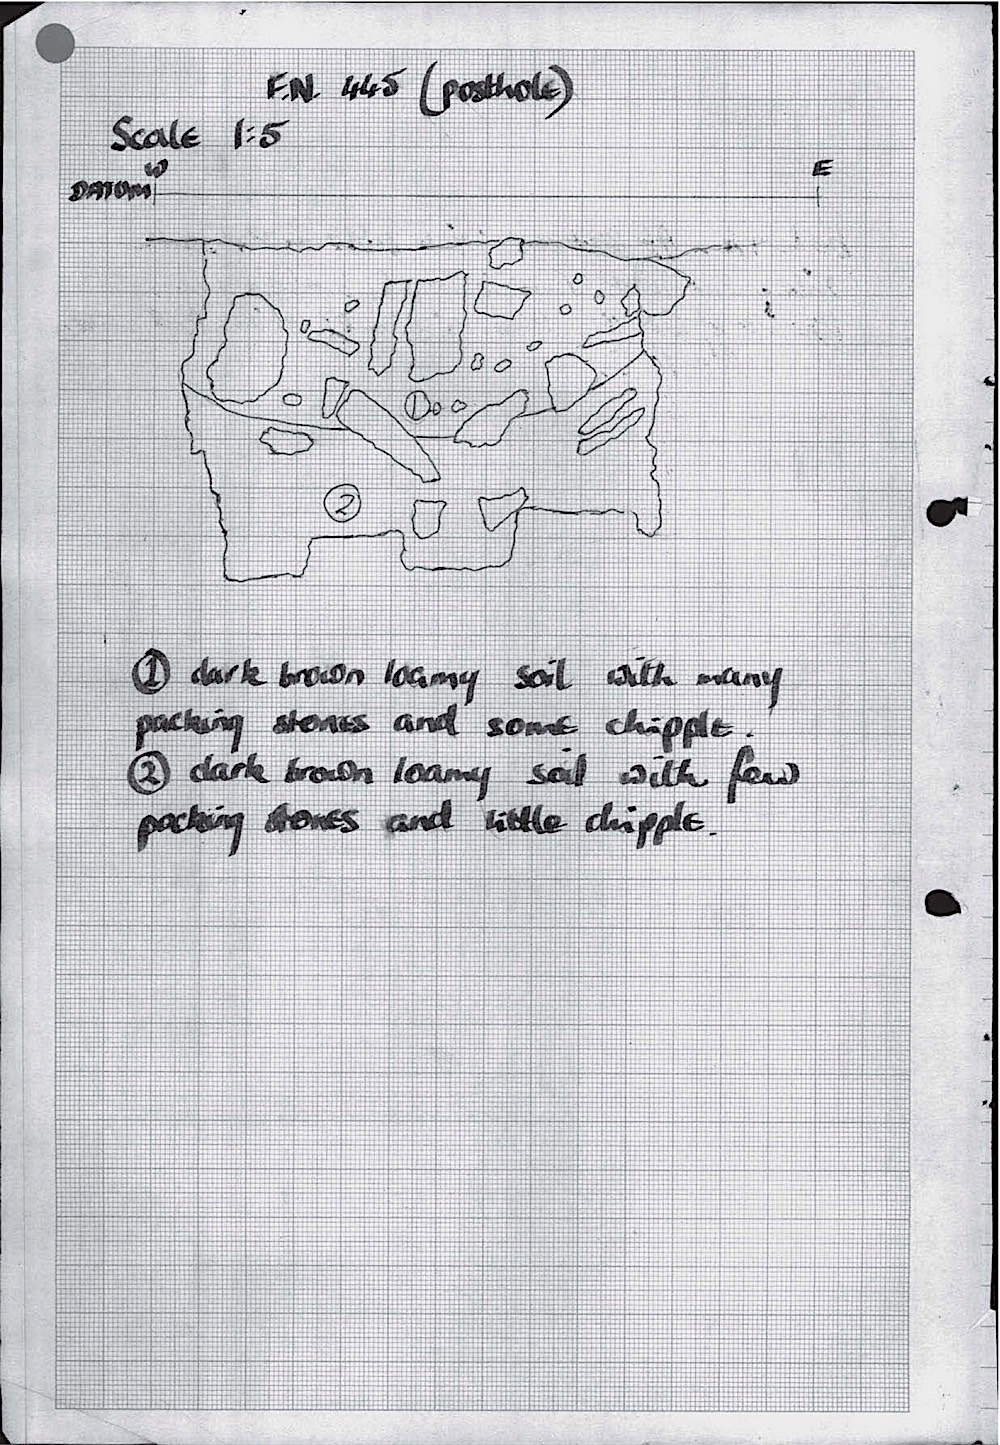 F.N. 445 (posthole)
Scale 1:5
W E
DATUM
1
2
① dark brown loamy soil with many
packing stones and some chipple.
② dark brown loamy soil with few
packing stones and little chipple.